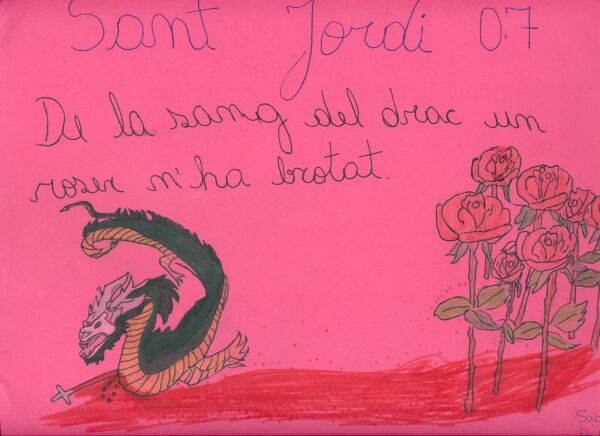 Sant Jordi 07
De la sang del drac un
roser n'ha brotat.